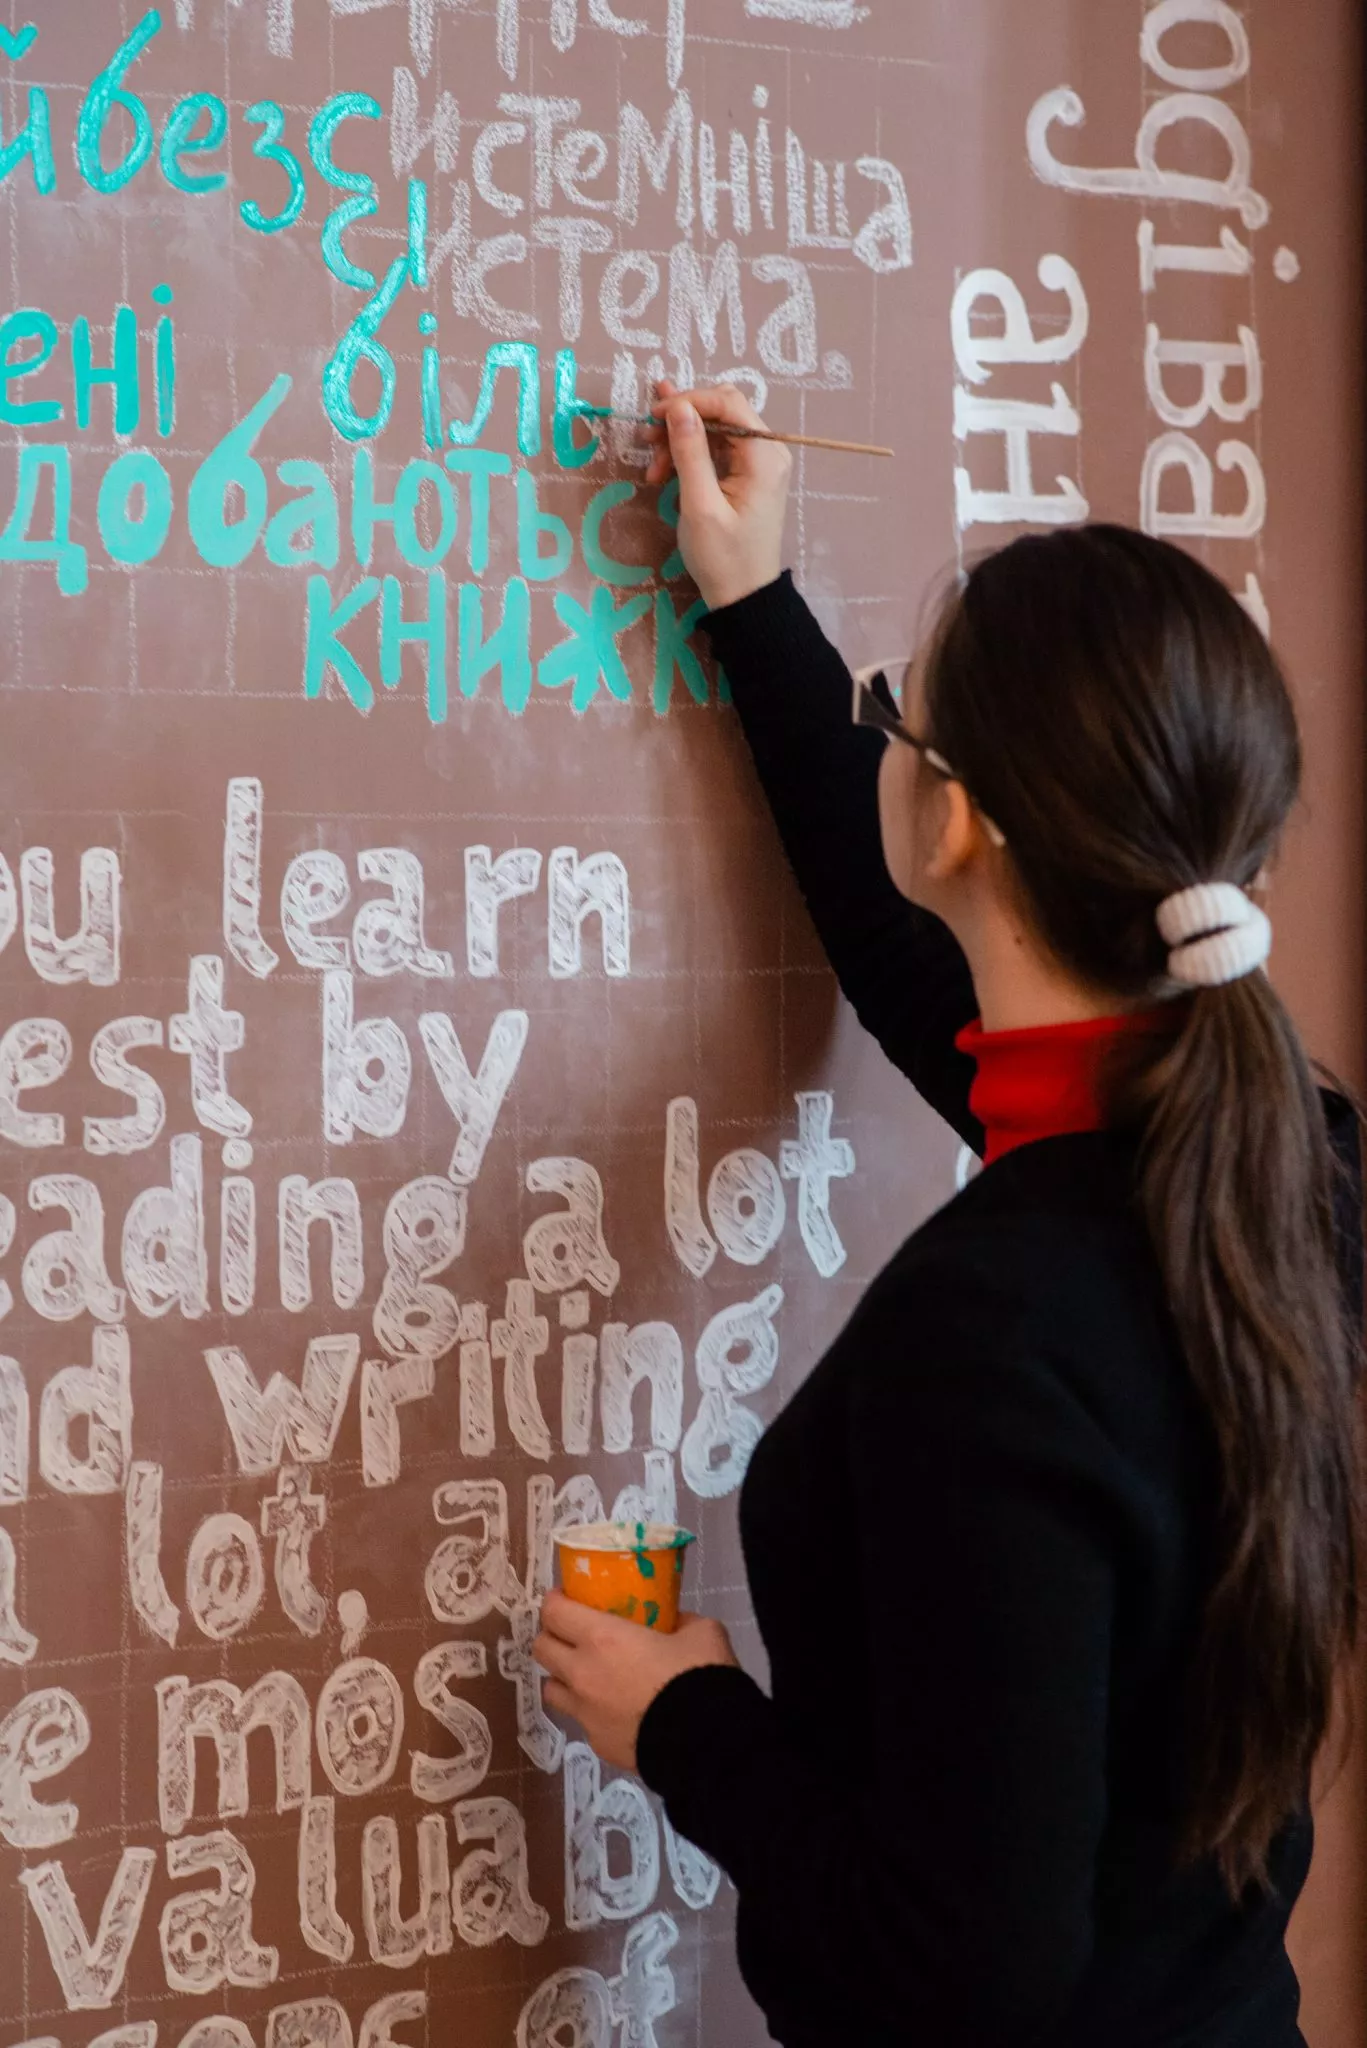 йбезсистемніша
система.
ені більше
добаються
книжк
ou learn
est by
eading a lot
nd writing
a lot, and
e most
valuabl
of